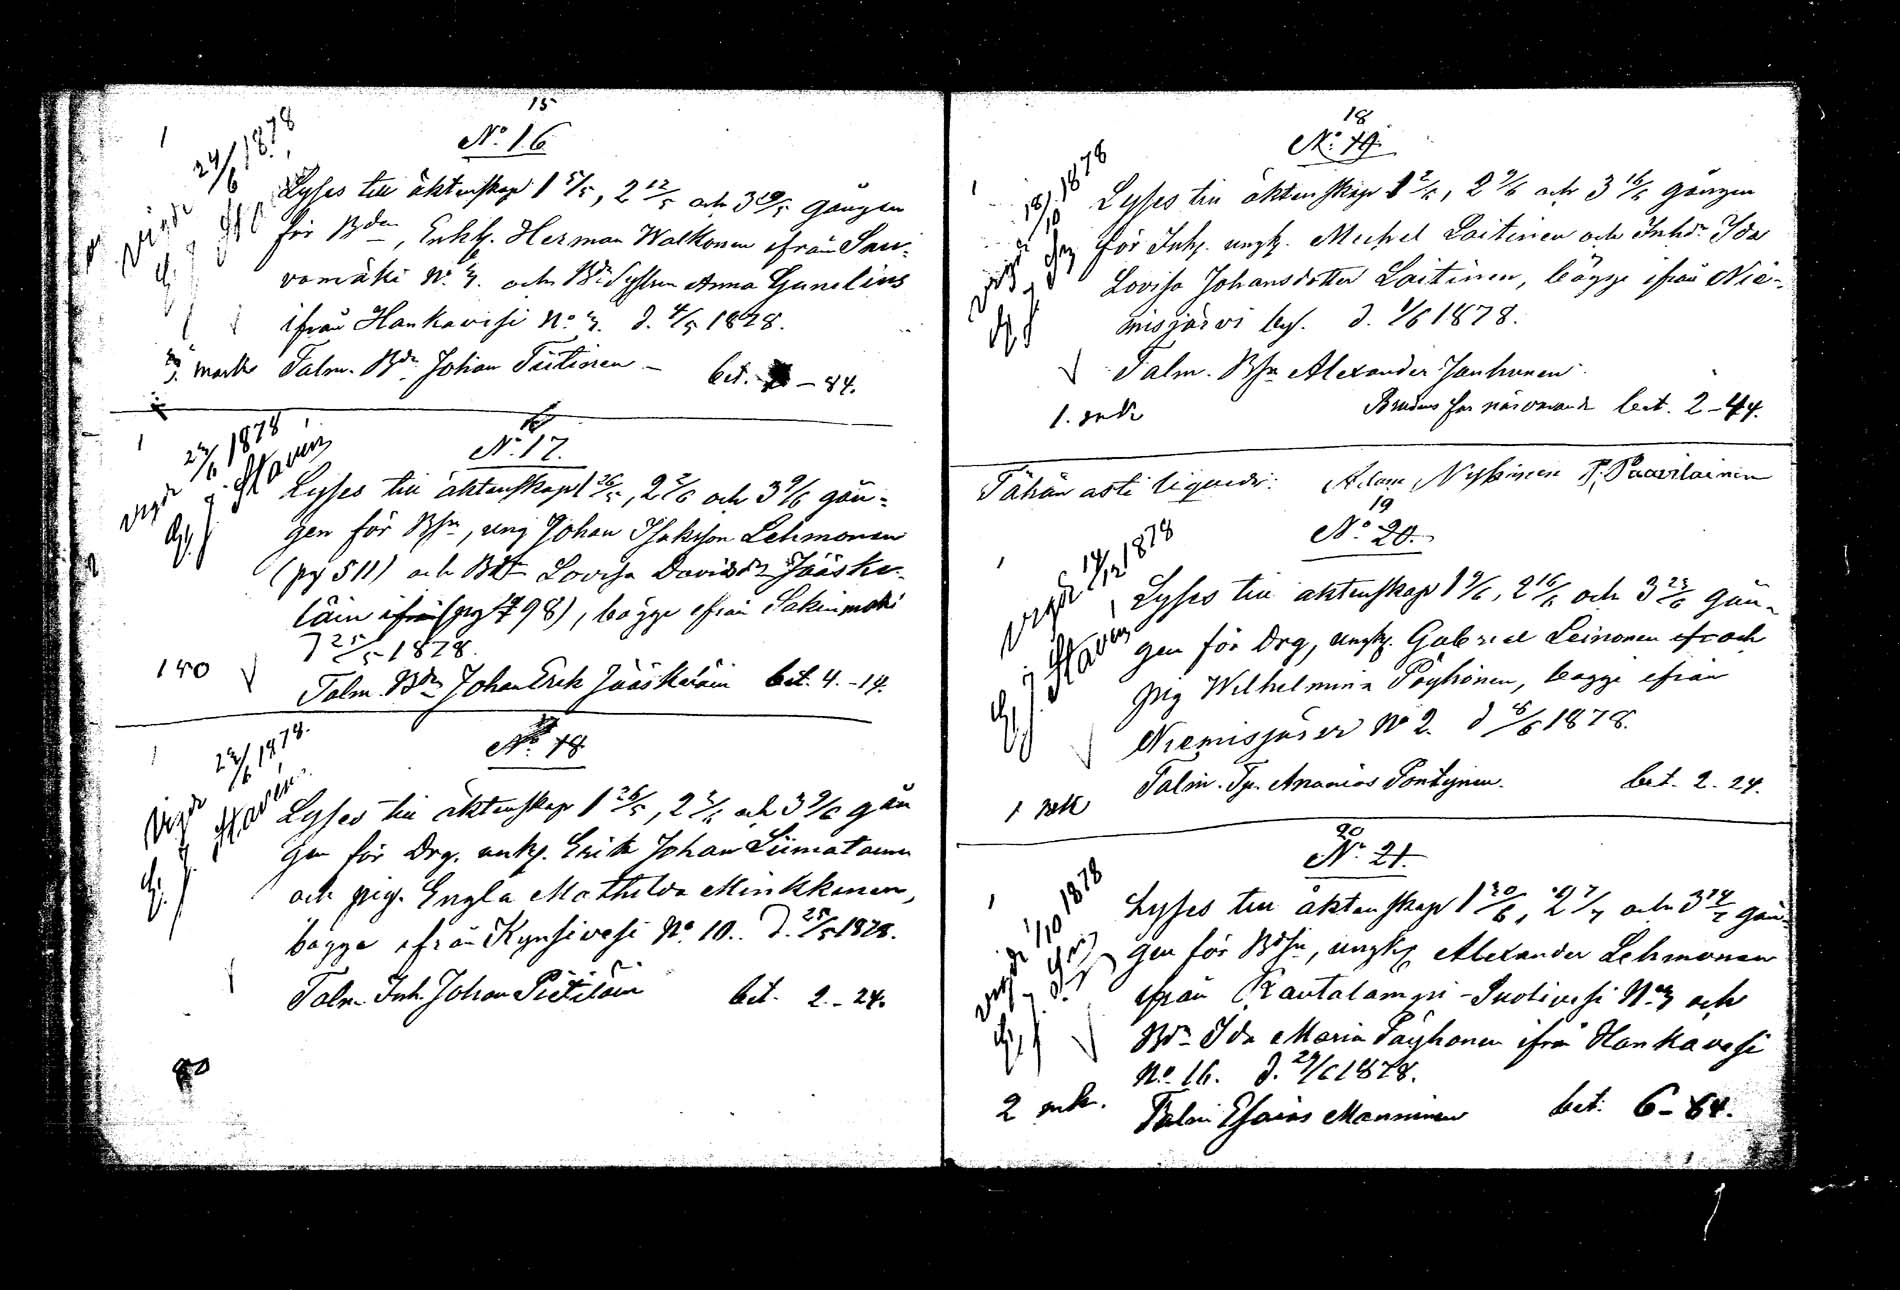 15
No 16
1
Vigde 24/6 1878
E. J. Stavén
Lyses till äktenskap 1 5/5, 2 12/5 och 3 19/5 gången
för Bden, Enkl. Herman Walkonen ifrån Sau-
vomäki No 3. och Bde Systern Anna Gunelius
ifrån Hankavesi No 3. d. 4/5 1878.
mark Talm. Bdn Johan Tiitinen – bet. – 84.
No 17.
1
Vigde 23/6 1878
E. J. Stavén
Lyses till äktenskap 1 26/5, 2 2/6 och 3 9/6 gån-
gen för Bsn, ung Johan Isaksson Lehmonen
(pg 511) och Bdr Lovisa Davidsdr Jääske-
läin ifrån (pg 498), bägge ifrån Sakinmäki
d 25/5 1878.
150
Talm. Bdn Johan Erik Jääskeläin bet. 4.-14.
No 18
1
Vigde 23/6 1878.
E. J. Stavén
Lyses till äktenskap 1 26/5, 2 2/6 och 3 9/6 gån
gen för Drg. unkl. Erik Johan Liimatainen
och pig. Engla Mathilda Minkkinen,
bägge ifrån Kynsivesi No 10.. d. 25/5 1878.
Talm. Inh. Johan Pietiläin bet. 2.-24.
80
18
No 19
1
Vigde 18/10 1878
Lyses till äktenskap 1 2/6, 2 9/6 och 3 16/6 gången
för Inh. ungk. Mickel Laitinen och Inhdr Ida
Lovisa Johansdotter Laitinen, bägge ifrån Nie-
misjärvi by. d. 1/6 1878.
Talm. Bsn Alexander Janhunen
1. mk Brudens far närvarande bet. 2-44.
Tähän asti liqueder: Adam Nyssinen P. Paavilainen
19
No 20.
1
Vigde 14/12 1878
E. J. Stavén
Lyses till äktenskap 1 9/6, 2 16/6 och 3 23/6 gån-
gen för Drg, ungk. Gabriel Leinonen och
pig Wilhelmina Pöyhönen, bägge ifrån
Niemisjärvi No 2. d 8/6 1878.
Talm. Tp. Ananias Pöntynen. bet. 2.24.
1 mk
20
No 21.
1
Vigde 1/10 1878
Lyses till äktenskap 1 30/6, 2 7/7 och 3 14/7 gån-
gen för Bdsn, ungk Alexander Lehmonen
ifrån Rautalampi - No 3 och
Bdn Ida Maria Pöyhönen ifrån Hankavesi
No 16. d. 29/6 1878.
2 mk.
Talm Esaias Manninen bet. 6-64.